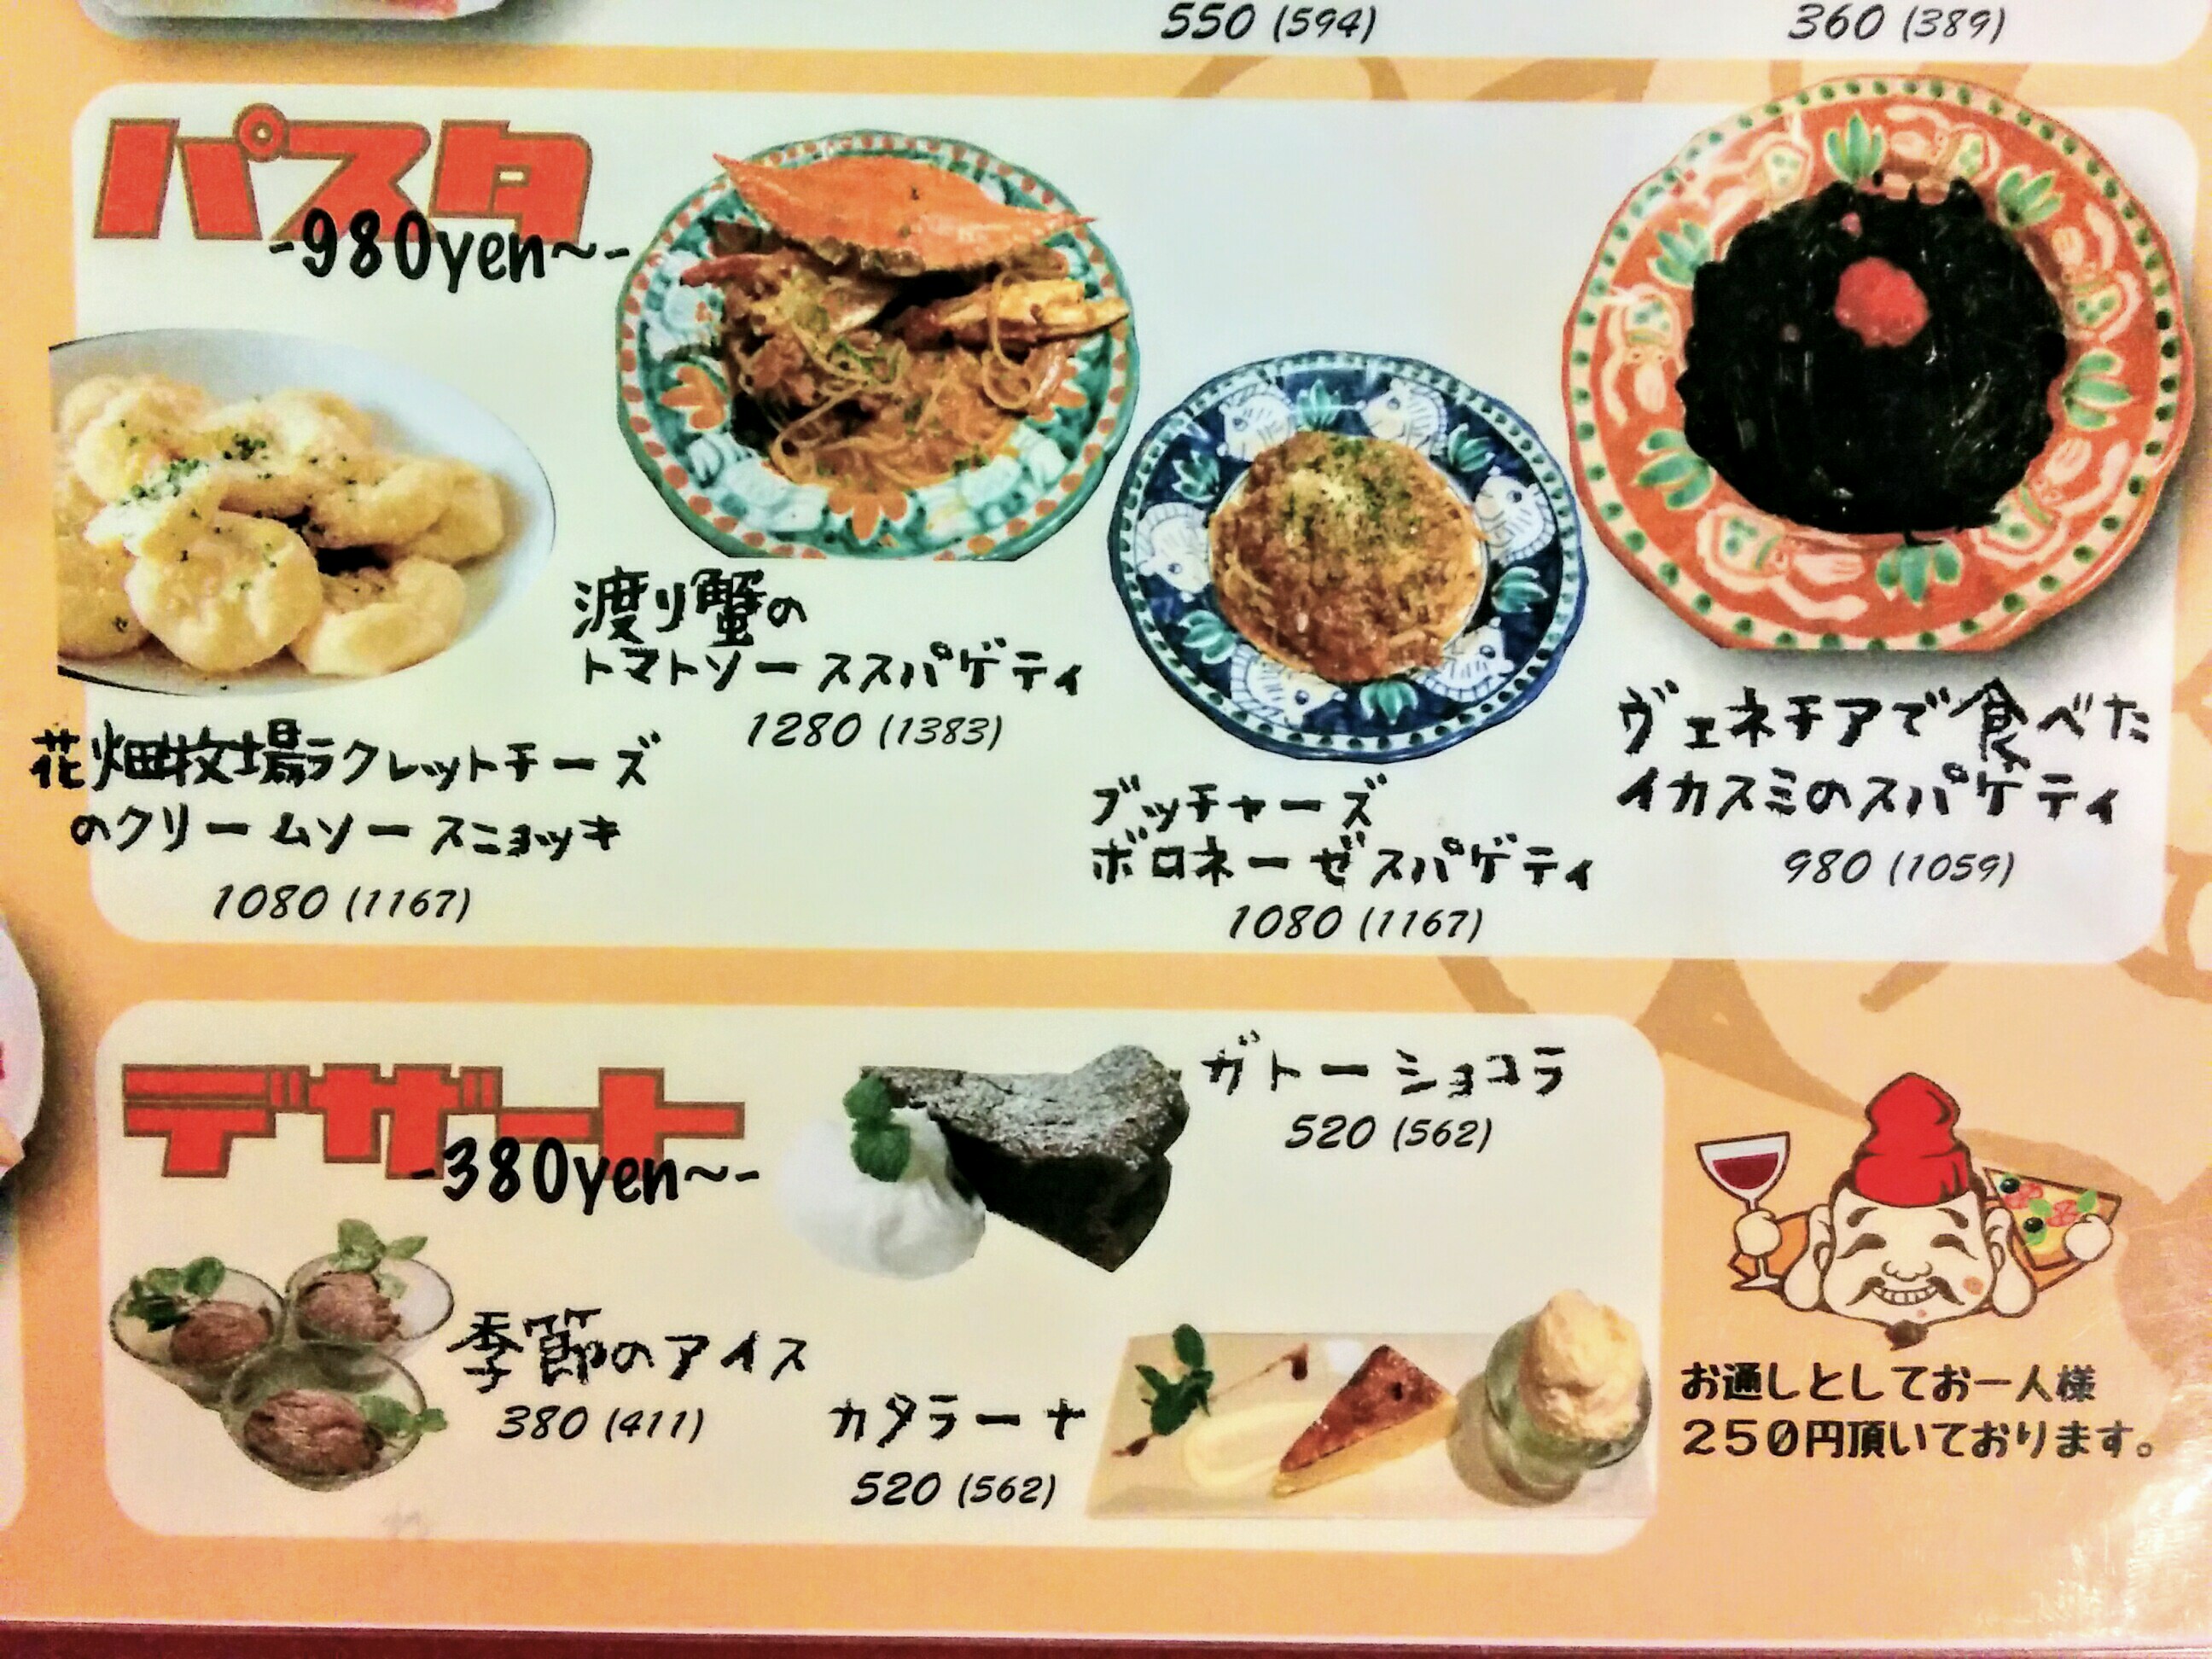 550 (594)
360 (389)
パスタ
-980yen~-
渡り蟹の
トマトソーススパゲティ
1280 (1383)
花畑牧場ラクレットチーズ
のクリームソースニョッキ
1080 (1167)
ブッチャーズ
ボロネーゼスパゲティ
1080 (1167)
ヴェネチアで食べた
イカスミのスパゲティ
980 (1059)
デザート
-380yen~-
ガトーショコラ
520 (562)
季節のアイス
380 (411)
カタラーナ
520 (562)
お通しとしてお一人様
250円頂いております。